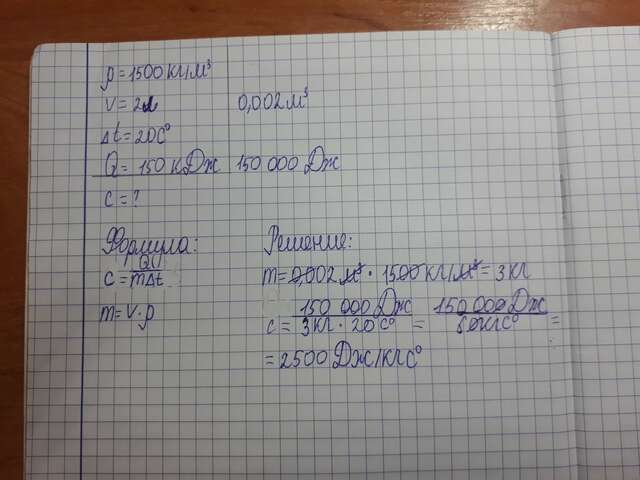 ρ = 1500 кг/м³
V = 2л 0,002 м³
Δt = 20 C°
Q = 150 кДж 150 000 Дж
c = ?
Формула: Решение:
c = |Q|/mΔt
m = 0,002 м³ · 1500 кг/м³ = 3 кг
m = V · ρ
c = 150 000 Дж/3 кг · 20 C° = 150 000 Дж/60 кг C° =
= 2500 Дж/кг C°